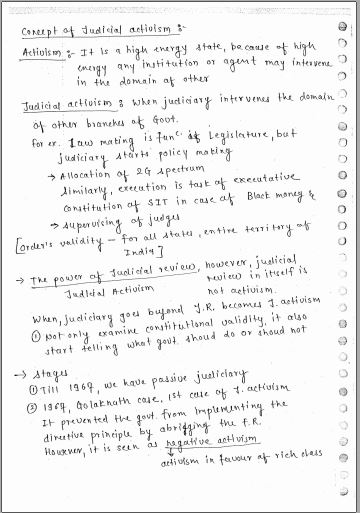 Concept of Judicial activism :-
Activism :- It is a high energy state, because of high
energy any institution or agent may intervene
in the domain of other
Judicial activism : When judiciary intervenes the domain
of other branches of Govt.
For ex. Law making is funⁿ. of Legislature, but
judiciary starts policy making
→ Allocation of 2G spectrum
Similarly, execution is task of executative
Constitution of SIT in case of Black money &
→ supervising of judges
[Order's validity – for all states, entire territory of
India]
→ The power of Judicial review, however, judicial
review in itself is
Judicial Activism
not activism.
When, judiciary goes beyond J.R. becomes J. activism
① Not only examine constitutional validity, it also
start telling what govt. should do or shoud not
→ Stages
① Till 1967, we have passive judiciary
② 1967, Golaknath case, 1st case of J. activism
It prevented the govt. from implementing the
directive principle by abridging the F.R.
However, it is seen as negative activism
↓
activism in favour of rich class